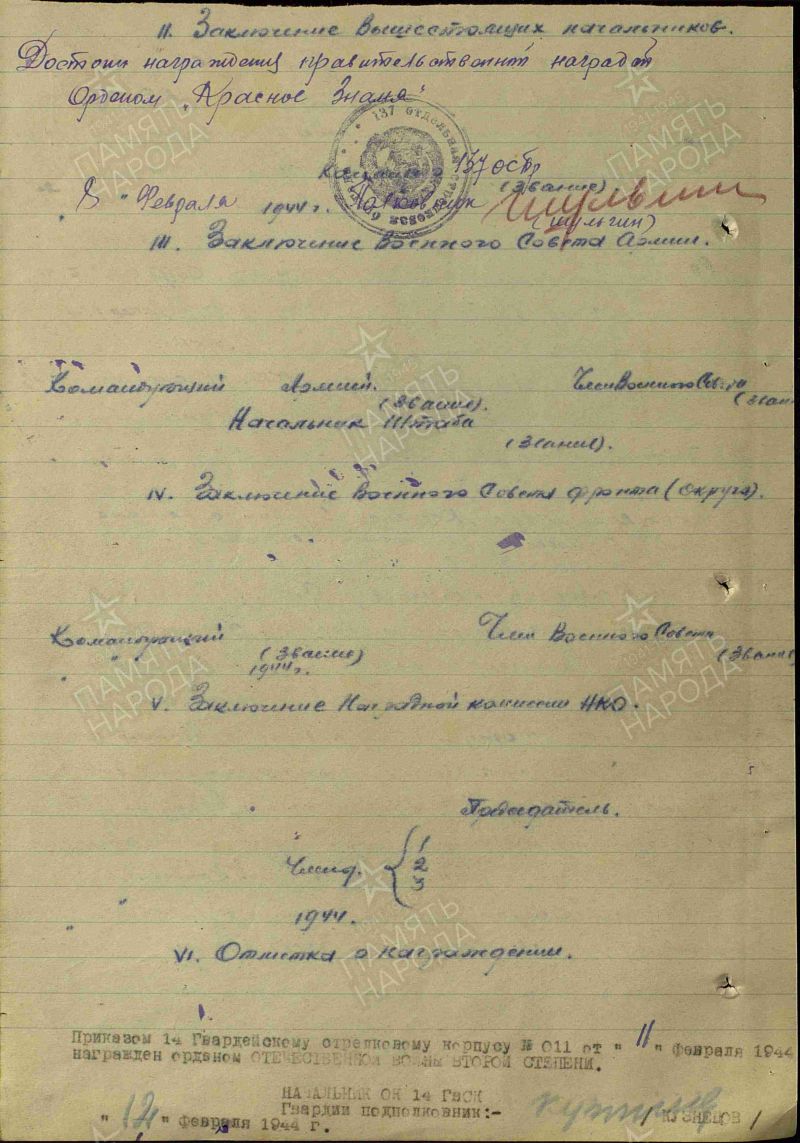 II. Заключение вышестоящих начальников.
Достоин награждения правительственной наградой
Орденом „Красное Знамя“
137 ОТДЕЛЬНАЯ СТРЕЛКОВАЯ
137 осбр
(Звание)
"8" Февраля 1944 г. Полковник Шульгин
(Шульгин)
III. Заключение Военного Совета Армии.
Командующий Армией. Член Военного Совета
(Звание). (Звание
Начальник Штаба
(Звание).
IV. Заключение Военного Совета фронта (округа).
Командующий Член Военного Совета
(Звание) (Звание
1944 г.
V. Заключение Наградной комиссии НКО.
Председатель.
Члены. { 1
2
3
1944.
VI. Отметка о награждении.
Приказом 14 Гвардейскому стрелковому корпусу № 011 от " 11 " февраля 1944
награжден орденом ОТЕЧЕСТВЕННОЙ ВОЙНЫ ВТОРОЙ СТЕПЕНИ.
НАЧАЛЬНИК ОК 14 ГвСК
Гвардии подполковник:-
/ КУЗНЕЦОВ /
" 12 " февраля 1944 г.
ПАМЯТЬ НАРОДА